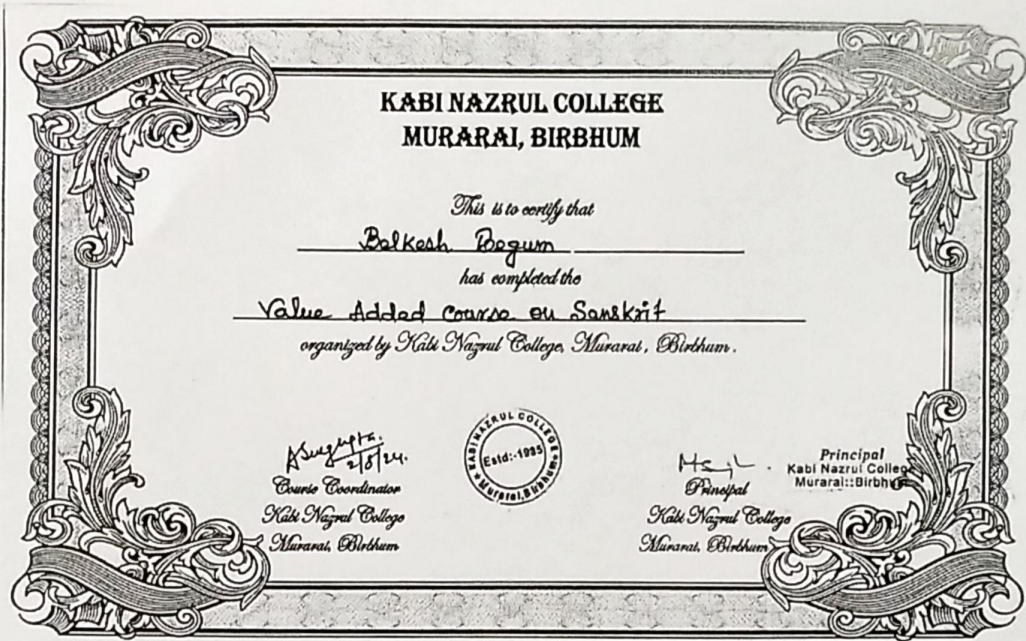 KABI NAZRUL COLLEGE
MURARAI, BIRBHUM
This is to certify that
Belkesh Begum
has completed the
Value Added course on Sanskrit
organized by Kabi Nazrul College, Murarai, Birbhum.
2/8/24.
Course Coordinator
Kabi Nazrul College
Murarai, Birbhum
KABI NAZRUL COLLEGE
Estd:-1985
Murarai, Birbhum
Principal
Kabi Nazrul College
Murarai, Birbhum
Principal
Kabi Nazrul College
Murarai::Birbhum